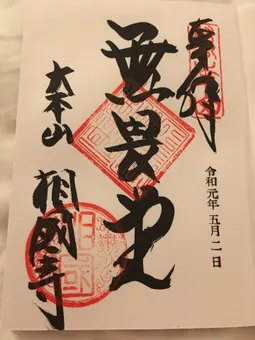 奉拝
令和元年五月二日
無畏堂
大本山
相國寺